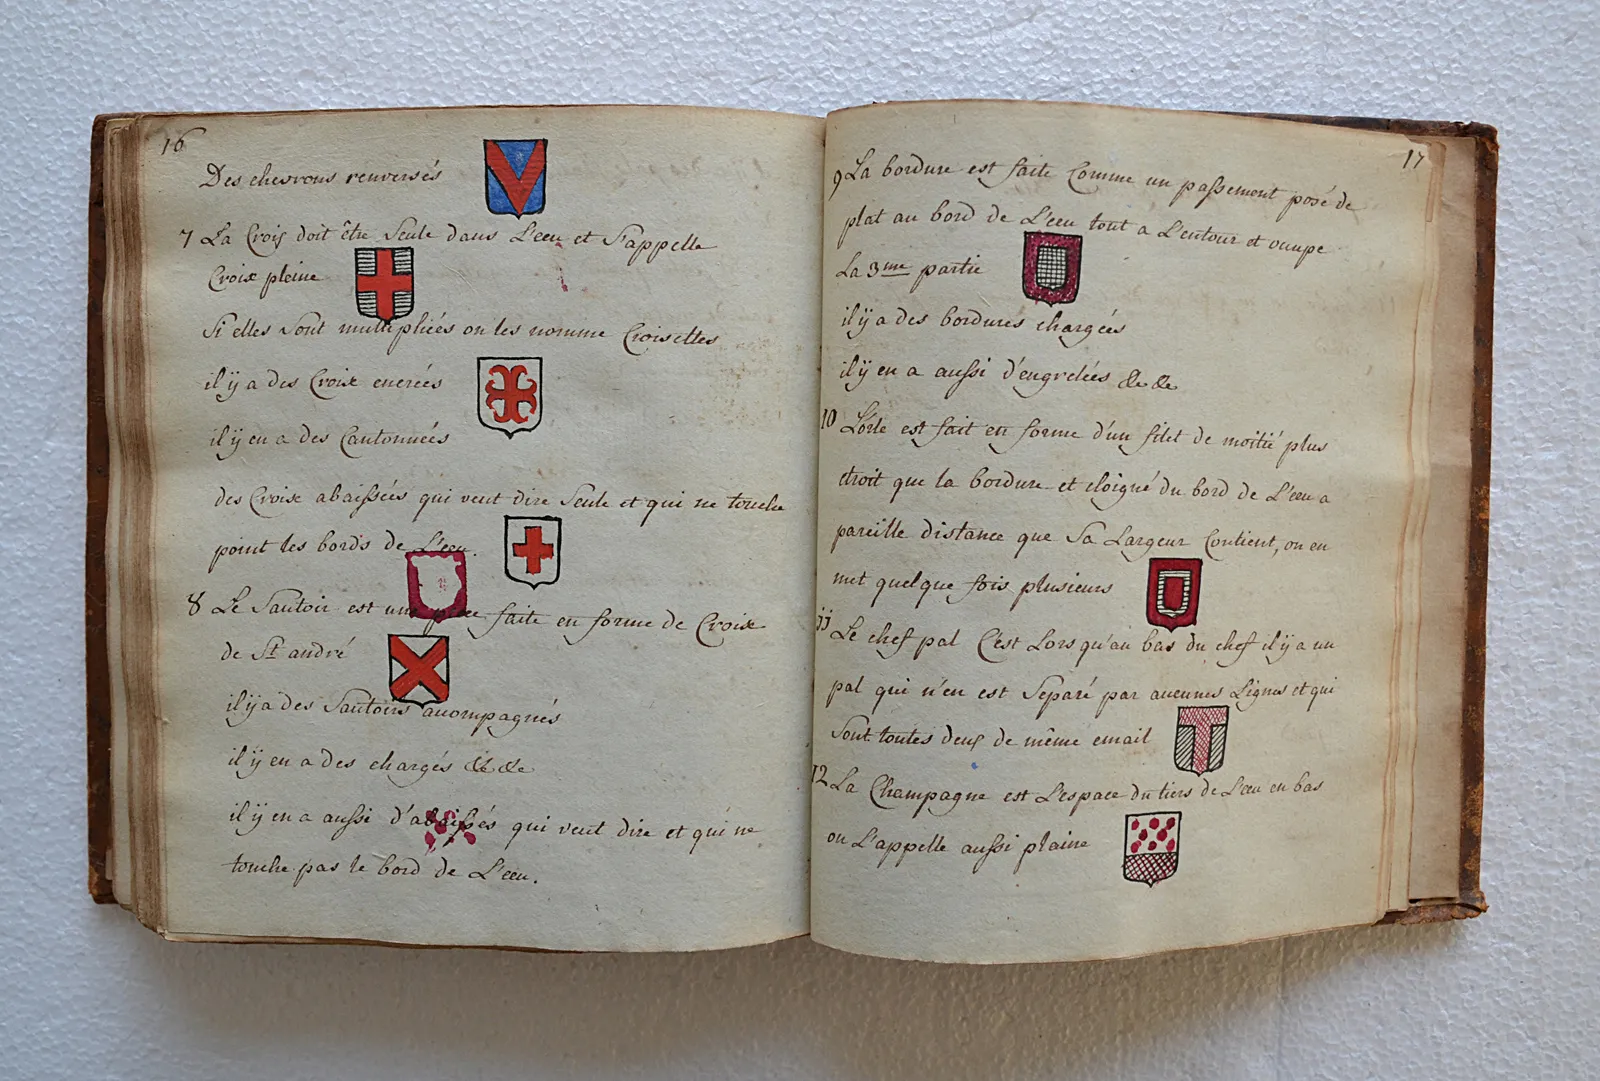 16
Des chevrons renversés
7 La Croix doit être Seule dans L'ecu et S'appelle
Croix pleine
Si elles Sont multipliées on les nomme Croisettes
il ÿ a des Croix encrées
il ÿ en a des Cantonnées
des Croix abaissées qui veut dire Seule et qui ne touche
point les bords de L'ecu.
8 Le Sautoir est une piece faite en forme de Croix
de St andré
il ÿ a des Sautoirs accompagnés
il ÿ en a des chargés &c &c
il ÿ en a aussi d'abaissés qui veut dire et qui ne
touche pas le bord de L'ecu.
17
9 La bordure est faite Comme un passement posé de
plat au bord de L'ecu tout a L'entour et occupe
La 3me partie
il ÿ a des bordures chargées
il ÿ en a aussi d'engrelées &c &c
10 L'orle est fait en forme d'un filet de moitié plus
etroit que la bordure et eloigné du bord de L'ecu a
pareille distance que Sa Largeur Contient, on en
met quelque fois plusieurs
11 Le chef pal C'est Lors qu'au bas du chef il ÿ a un
pal qui n'en est Separé par aucunes Lignes et qui
Sont toutes deux de même email
12 La Champagne est L'espace du tiers de L'ecu en bas
on L'appelle aussi plaine